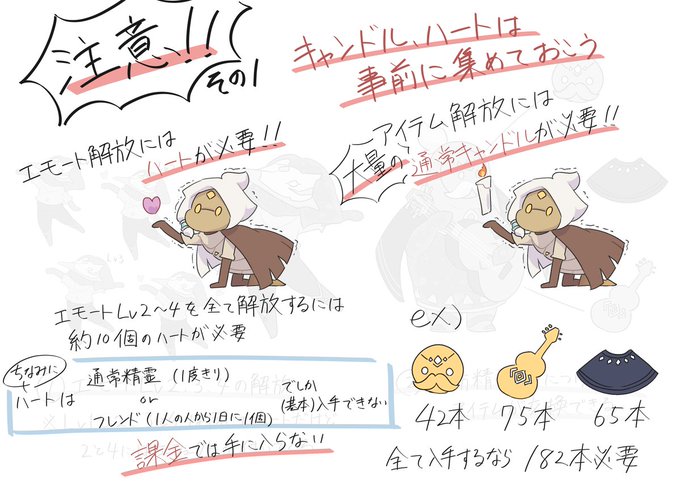 注意!!
その1
キャンドル、ハートは
事前に集めておこう
エモート解放には
ハートが必要!!
アイテム解放には
大量の通常キャンドルが必要!!
エモートLv2〜4を全て解放するには
約10個のハートが必要
ちなみに
ハートは
通常精霊(1度きり)
or
フレンド(1人の人から1日に1個)
でしか
(基本)入手できない
課金では手に入らない
ex)
42本 75本 65本
全て入手するなら 182本必要